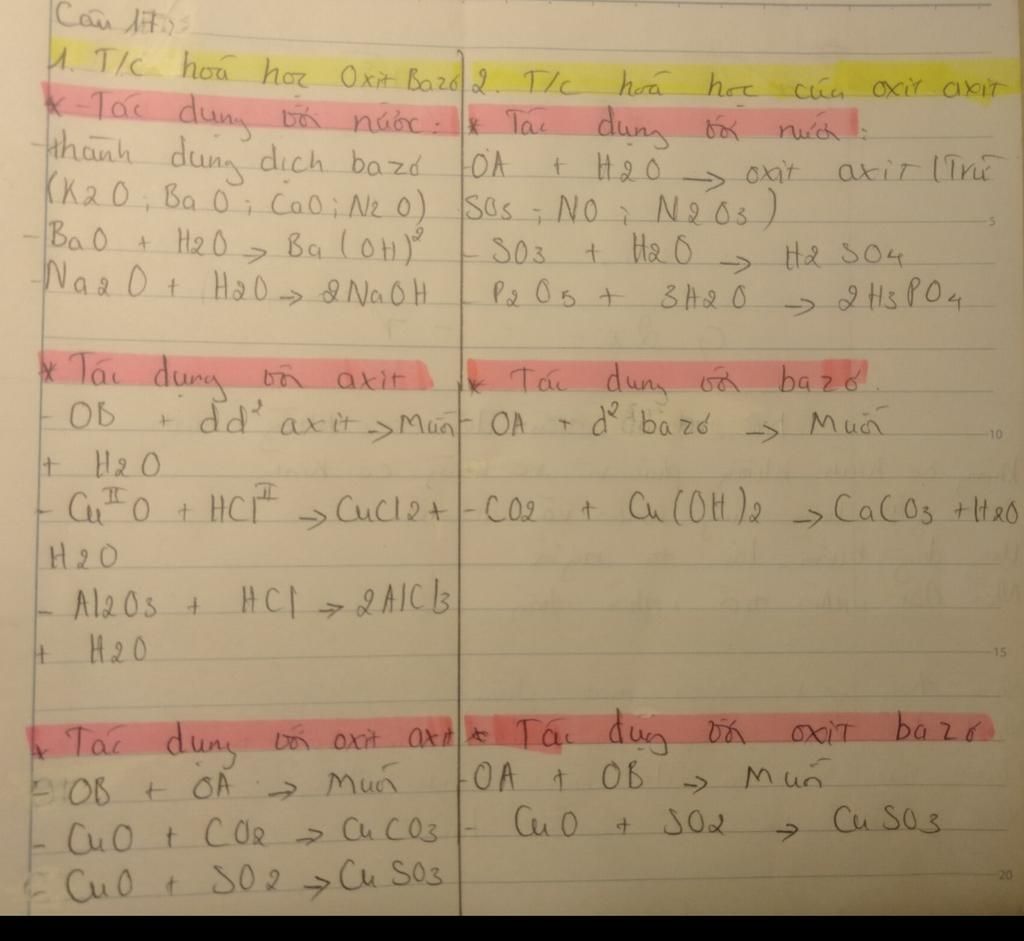 Câu 17:
1. T/c hoá học Oxit Bazơ
* - Tác dụng với nước:
- thành dung dịch bazơ
(K2O; BaO; CaO; N2O)
- BaO + H2O → Ba(OH)²
- Na2O + H2O → 2NaOH
* Tác dụng với axit
- OB + dd² axit → Muối
+ H2O
- Cu^II O + HCl^II → CuCl2 +
H2O
- Al2O3 + HCl → 2AlCl3
+ H2O
* Tác dụng với oxit axit
- OB + OA → Muối
- CuO + CO2 → CuCO3
- CuO + SO2 → CuSO3
2. T/c hoá học của oxit axit
* Tác dụng với nước:
- OA + H2O → oxit axit (Trừ
SO5; NO; N2O3)
- SO3 + H2O → H2SO4
- P2O5 + 3H2O → 2H3PO4
* Tác dụng với bazơ.
- OA + d² bazơ → Muối
- CO2 + Cu(OH)2 → CaCO3 + H2O
* Tác dụng với oxit bazơ
- OA + OB → Muối
- CuO + SO2 → CuSO3
5
10
15
20